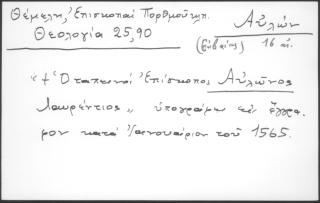 Θέμελη, Ἐπισκοπαὶ Πορθμοῦ κτλ.
Θεολογία 25,90
Αὐλών
(Εὐβοίας) 16 αἰ.
"+ Ὁ ταπεινὸς Ἐπίσκοπος Αὐλῶνος
Λαυρέντιος" ὑπογράφει εἰς ἔγγρα
φον κατὰ Ἰανουάριον τοῦ 1565.